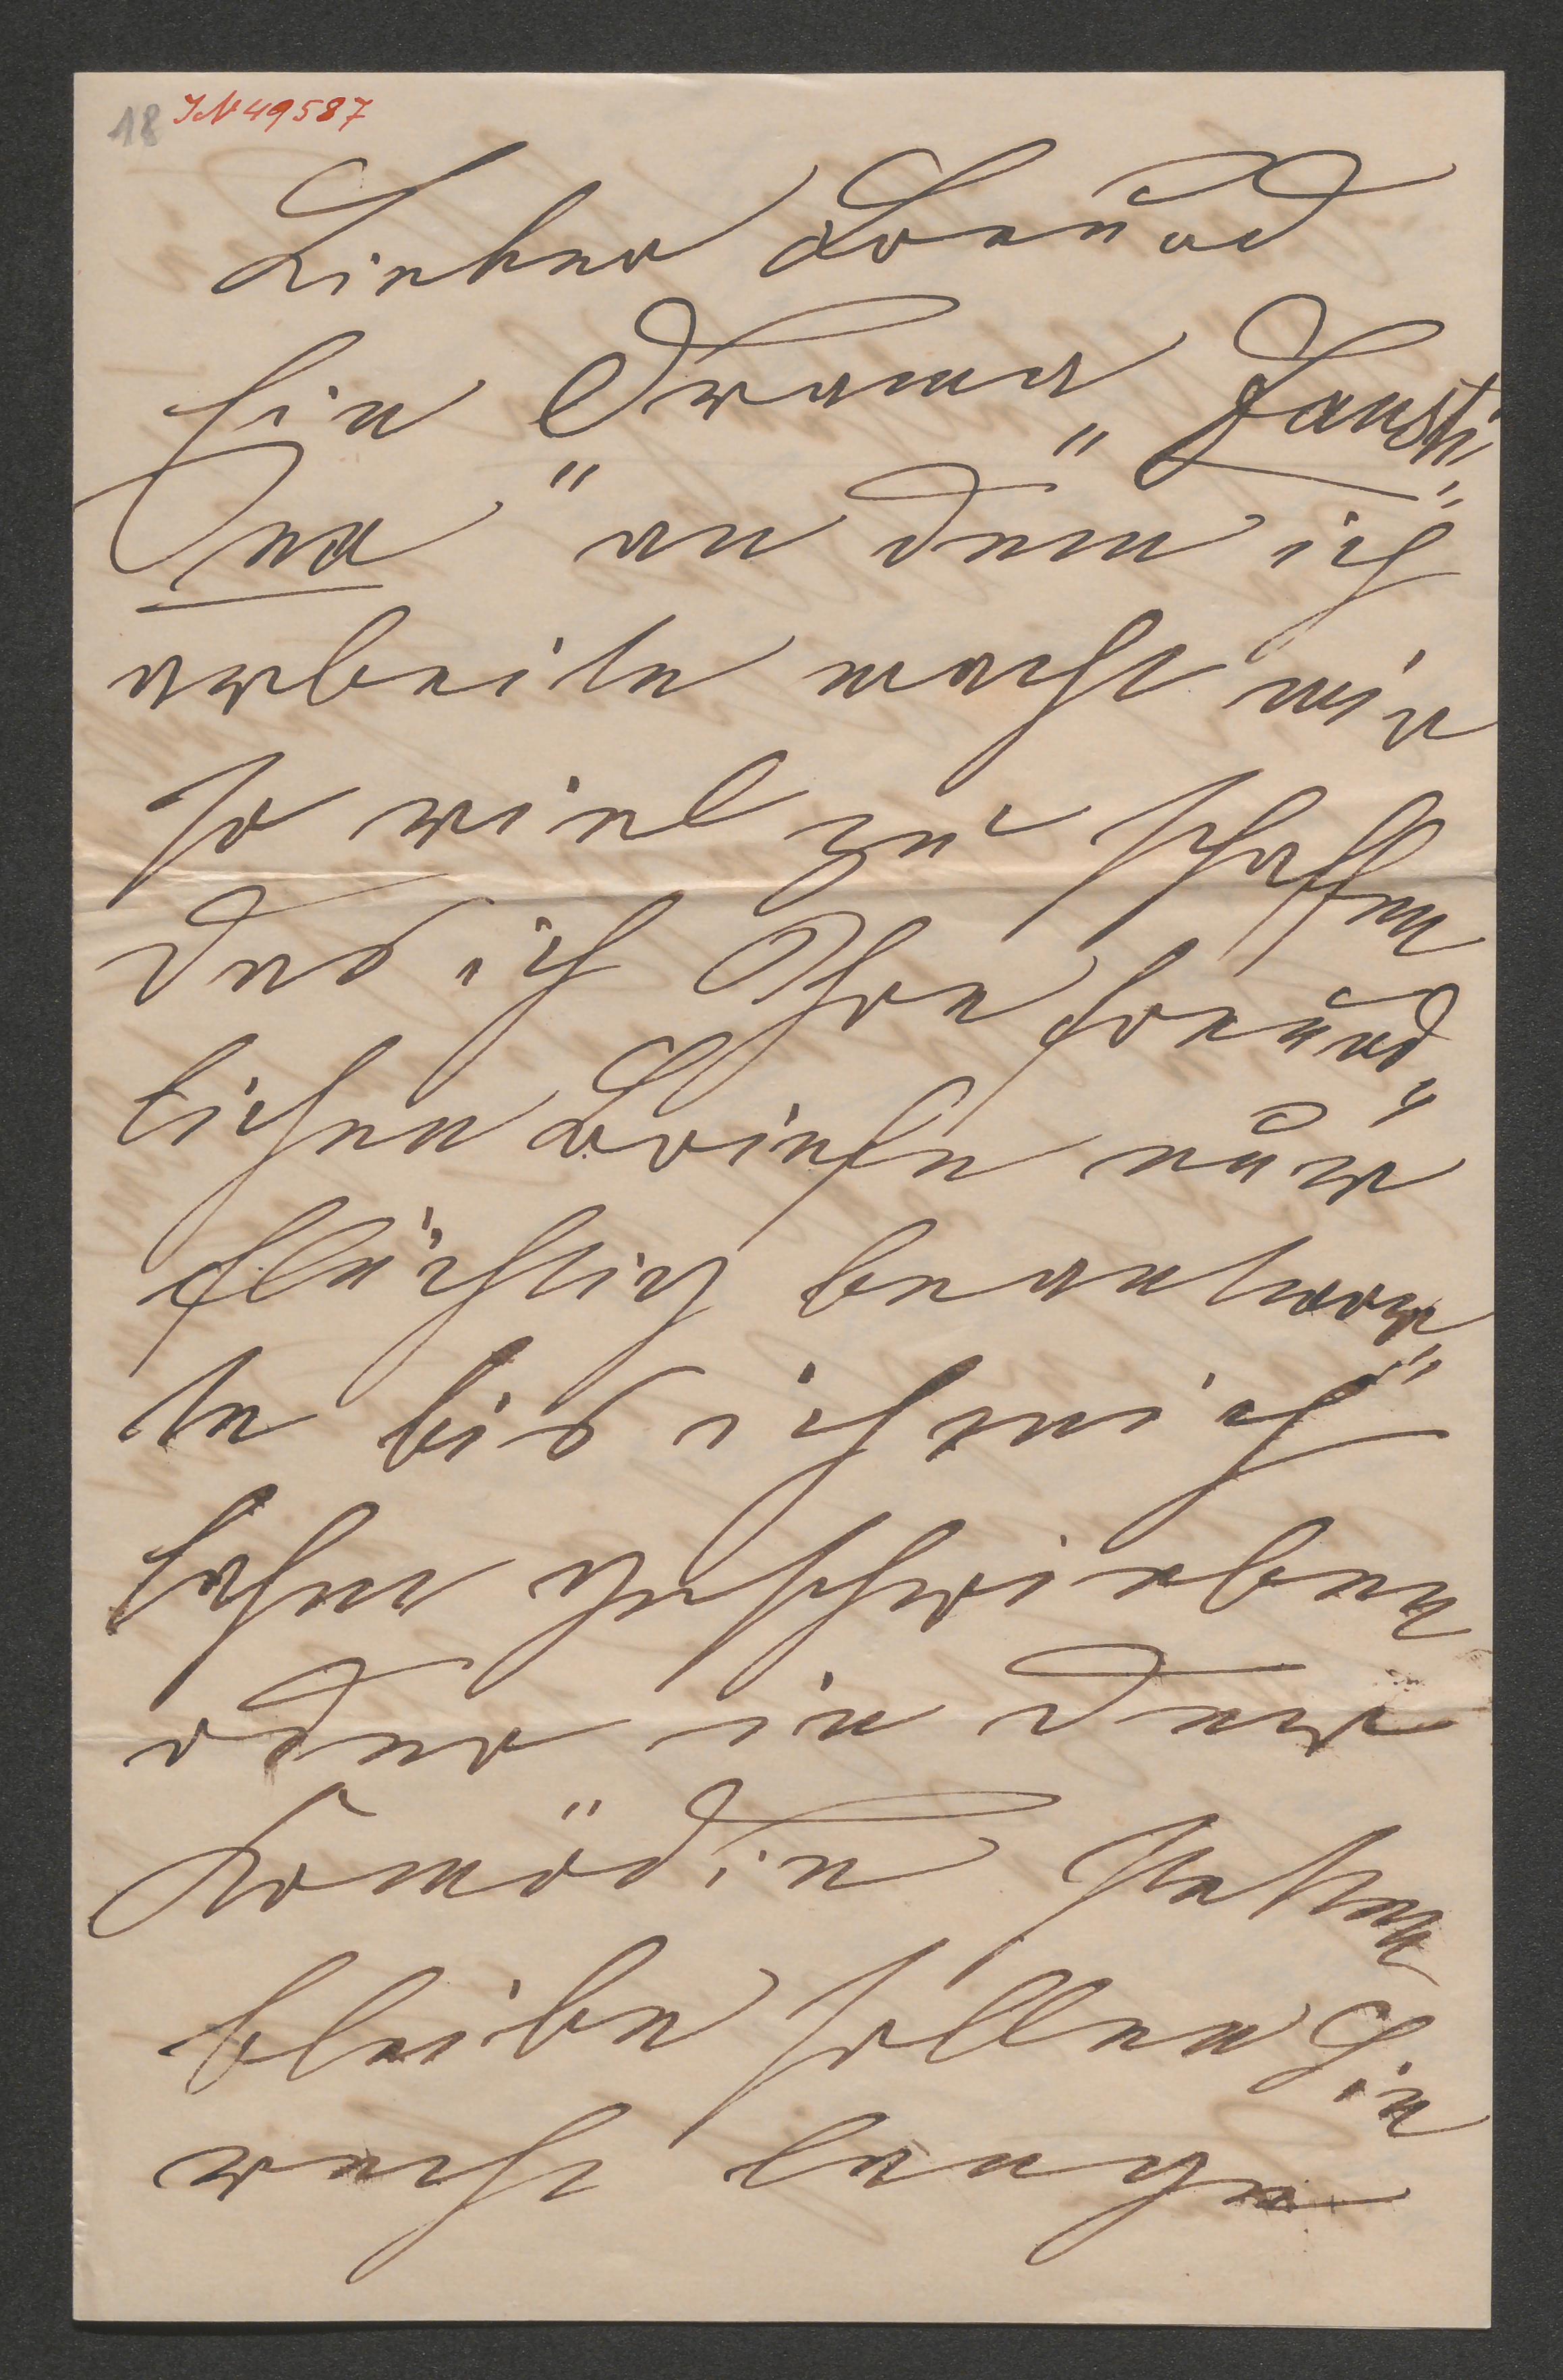 18 IN 49587
Lieber Freund
Ein Drama „Fausti„
na" an dem ich
arbeite macht mir
so viel zu schaffen
das ich Ihre freund„
lichen Briefe nur
flüchtig beantwor„
te bis ich mich
lahm geschrieben
oder in der
Komödie stecken
bleibe sollen Sie
recht lange